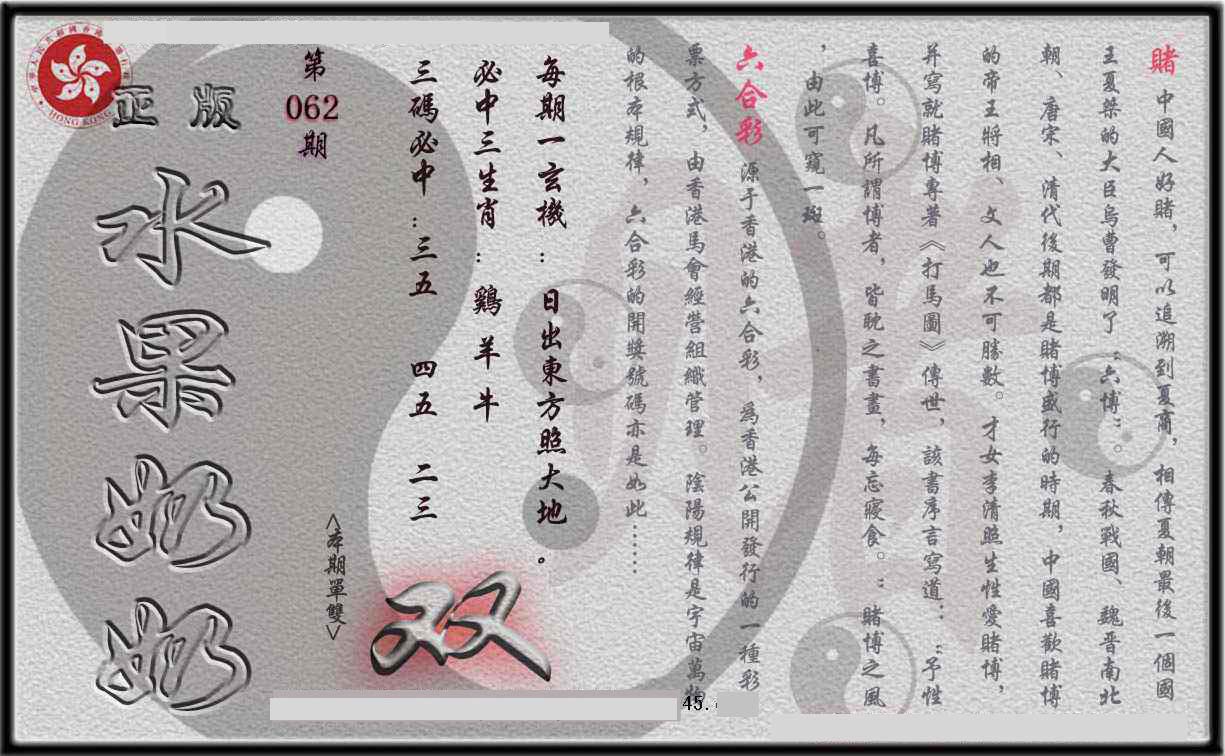 賭 中國人好賭，可以追溯到夏商，相傳夏朝最後一個國
王夏桀的大臣烏曹發明了“六博”。春秋戰國、魏晋南北
朝、唐宋、清代後期都是賭博盛行的時期，中國喜歡賭博
的帝王將相、文人也不可勝數。才女李清照生性愛賭博，
并寫就賭博專著《打馬圖》傳世，該書序言寫道：“予性
喜博。凡所謂博者，皆耽之書畫，每忘寢食。”賭博之風
，由此可窺一斑。
六合彩 源于香港的六合彩，爲香港公開發行的一種彩
票方式，由香港馬會經營組織管理。陰陽規律是宇宙萬物
的根本規律，六合彩的開獎號碼亦是如此……
每期一玄機：日出東方照大地。
必中三生肖：鷄 羊 牛
三碼必中：三五 四五 二三
<本期單雙>
双
第
062
期
正版
水果奶奶
HONG KONG
45.